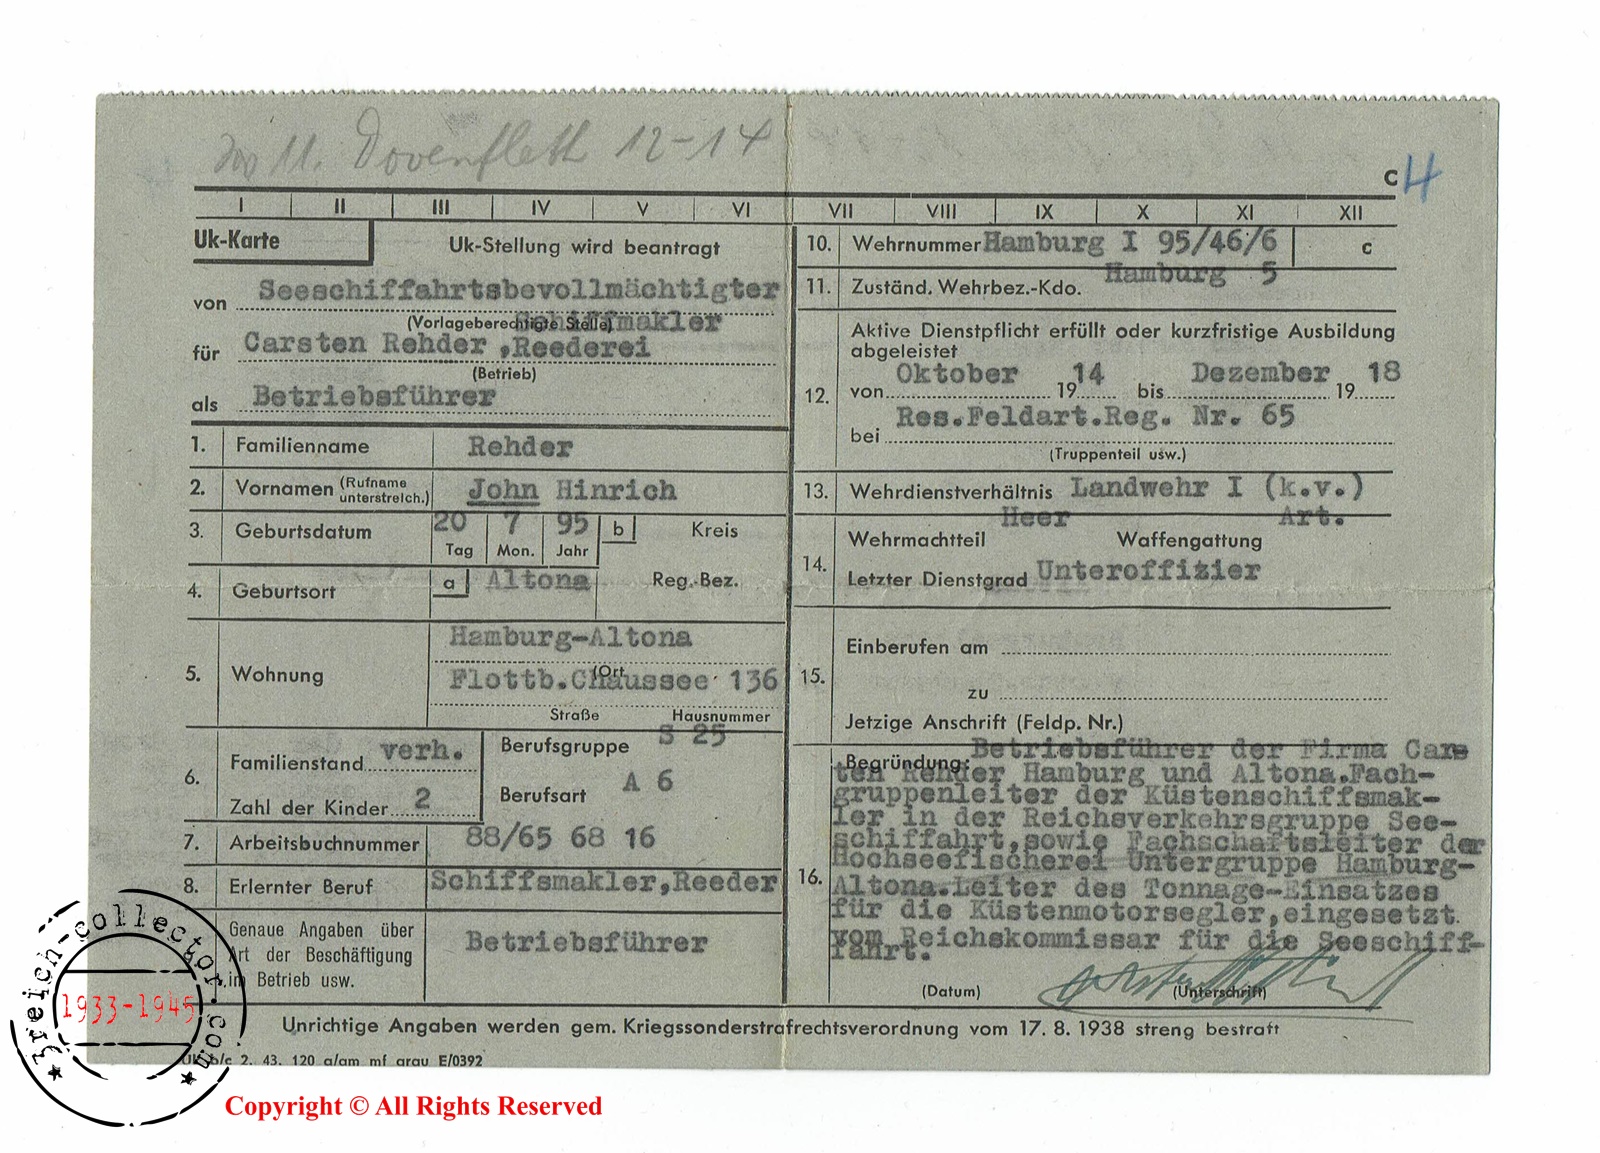 Dovenfleth 12-14
c 4
I II III IV V VI VII VIII IX X XI XII
Uk-Karte
Uk-Stellung wird beantragt
von Seeschiffahrtsbevollmächtigter
(Vorlageberechtigte Stelle)
Schiffmakler
für Carsten Rehder ,Reederei
(Betrieb)
als Betriebsführer
1. Familienname Rehder
2. Vornamen (Rufname unterstreich.) John Hinrich
3. Geburtsdatum 20 7 95 b Kreis
Tag Mon. Jahr
4. Geburtsort a Altona Reg.-Bez.
5. Wohnung Hamburg-Altona
(Ort
Flottb.Chaussee 136
Straße Hausnummer
6. Familienstand verh. Berufsgruppe S 25
Zahl der Kinder 2 Berufsart A 6
7. Arbeitsbuchnummer 88/65 68 16
8. Erlernter Beruf Schiffsmakler,Reeder
Genaue Angaben über
Art der Beschäftigung
im Betrieb usw.
Betriebsführer
10. Wehrnummer Hamburg I 95/46/6 c
11. Zuständ. Wehrbez.-Kdo. Hamburg 5
12. Aktive Dienstpflicht erfüllt oder kurzfristige Ausbildung
abgeleistet
von Oktober 19 14 bis Dezember 19 18
bei Res.Feldart.Reg. Nr. 65
(Truppenteil usw.)
13. Wehrdienstverhältnis Landwehr I (k.v.)
14. Heer Art.
Wehrmachtteil Waffengattung
Letzter Dienstgrad Unteroffizier
15. Einberufen am
zu
Jetzige Anschrift (Feldp. Nr.)
16. Begründung: Betriebsführer der Firma Cars
ten Rehder Hamburg und Altona.Fach-
gruppenleiter der Küstenschiffsmak-
ler in der Reichsverkehrsgruppe See-
schiffahrt,sowie Fachschaftsleiter der
Hochseefischerei Untergruppe Hamburg-
Altona.Leiter des Tonnage-Einsatzes
für die Küstenmotorsegler,eingesetzt
vom Reichskommissar für die Seeschiff-
fahrt.
(Datum) (Unterschrift)
Unrichtige Angaben werden gem. Kriegssonderstrafrechtsverordnung vom 17. 8. 1938 streng bestraft
Uk b/c 2. 43. 120 a/am mf grau E/0392
3reich-collector.com
1933-1945
Copyright © All Rights Reserved